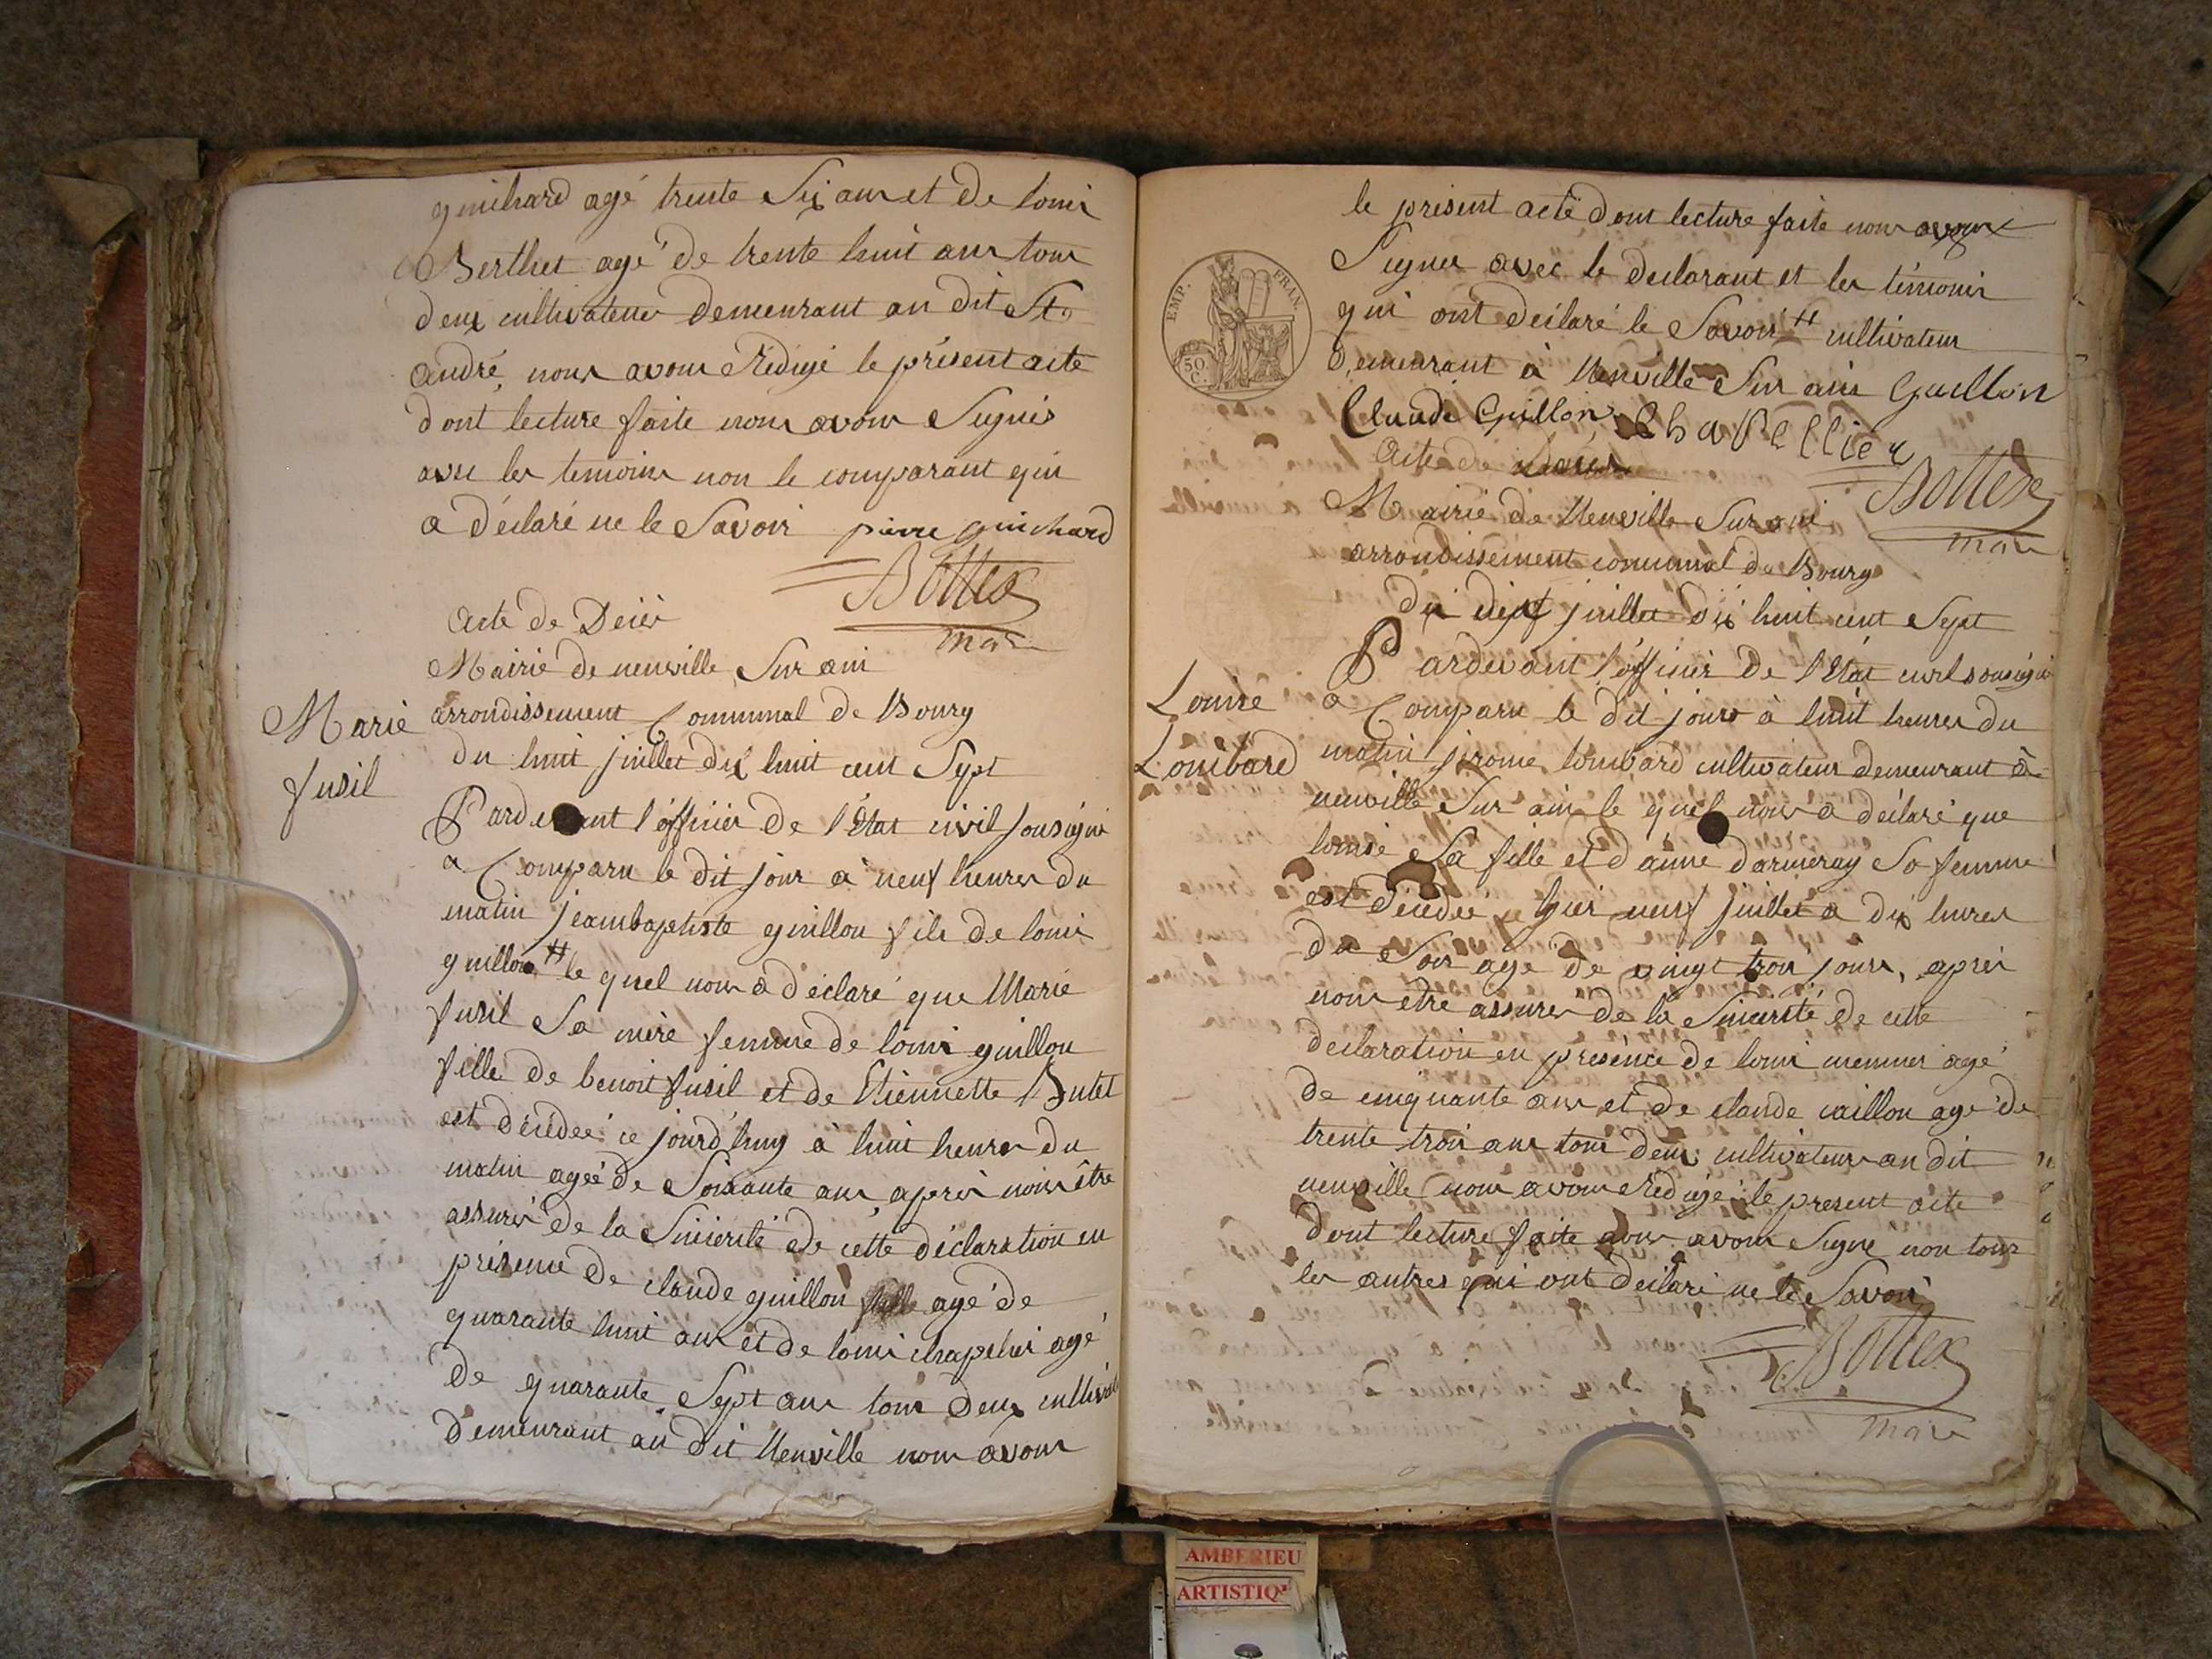 guichard agé trente Six ans et de louis
Berthet agé de trente huit ans tous
deux cultivateurs demeurant au dit St.
andré, nous avons Rédigé le présent acte
dont lecture faite nous avons Signés
avec les temoins non le comparant qui
a déclaré ne le Savoir pierre guichard
Bottex
maire
Acte de Décès
Mairie de neuville Sur ain
arrondissement Communal de Bourg
du huit juillet dix huit cent Sept
Marie
fusil
Pardevant l'officier de l'Etat civil Sousigné
a Comparu le dit jour à neuf heures du
matin jeambaptiste guillon fils de louis
guillon # le quel nous a déclaré que Marie
fusil Sa mère femme de louis guillon
fille de benoit fusil et de Etiennette Butet
est décédée ce jourd'huy à huit heures du
matin agée de Soixante ans, après nous être
assurés de la Sincérité de cette déclaration en
présence de claude guillon agé de
quarante huit ans et de louis chapelier agé
de quarante Sept ans tous deux cultivat
demeurant au dit Neuville nous avons
le présent acte dont lecture faite nous avons
Signer avec le declarant et les témoins
qui ont déclaré le Savoir # cultivateur
demeurant à Neuville Sur ain Guillon
Claude Guillon Chapellier
EMP. FRAN.
50 C.
Bottex
maire
Acte de décès
Mairie de Neuville Sur ain
arrondissement communal de Bourg
du dix juillet dix huit cent Sept
Louise
Lombard
Pardevant l'officier de l'Etat civil sousigné
a Comparu le dit jour à huit heures du
matin jérome lombard cultivateur demeurant à
neuville Sur ain le quel nous a déclaré que
louise Sa fille et d'anne darmeray Sa femme
est décédée hier neuf juillet à dix heures
du Soir agé de vingt trois jours, après
nous être assurés de la Sincerité de cette
declaration en presénce de louis
agé
de cinquante ans et de claude caillon agé de
trente trois ans tous deux cultivateurs au dit
neuville nous avons Rédigé le present acte
dont lecture faite nous avons Signé non tous
les autres qui ont declaré ne le Savoir
Bottex
maire
AMBERIEU
ARTISTIQ